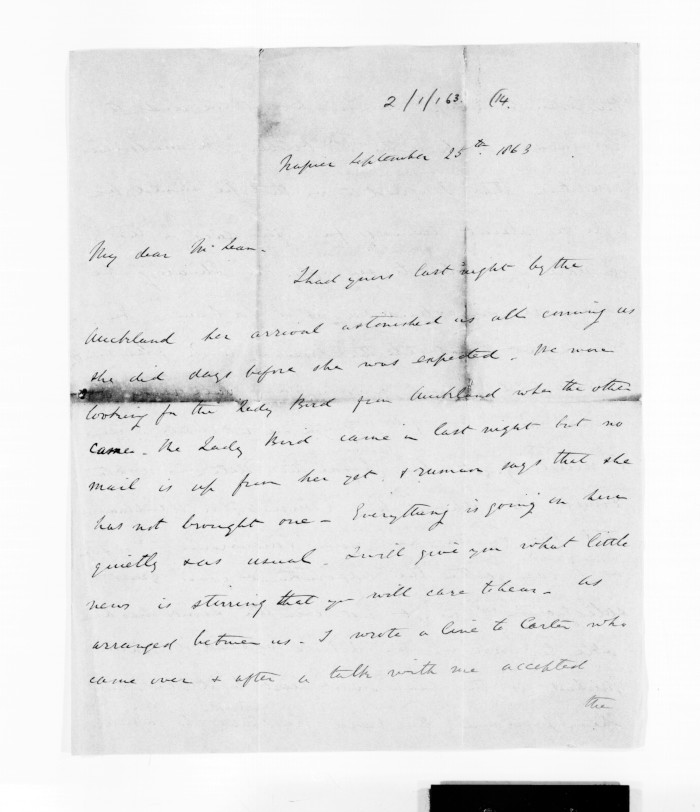 2/1/163. (14.
Napier September 25th 1863
My dear McLean -
I had yours last night by the
Auckland her arrival astonished us all coming as
she did days before she was expected. We were
looking for the Lady Bird from Auckland when the other
came - the Lady Bird came in last night but no
mail is up from her yet. & rumour says that she
has not brought one - Everything is going on here
quietly & as usual. I will give you what little
news is stirring that you will care to hear - as
arranged between us - I wrote a line to Carter who
came over & after a talk with me accepted
the